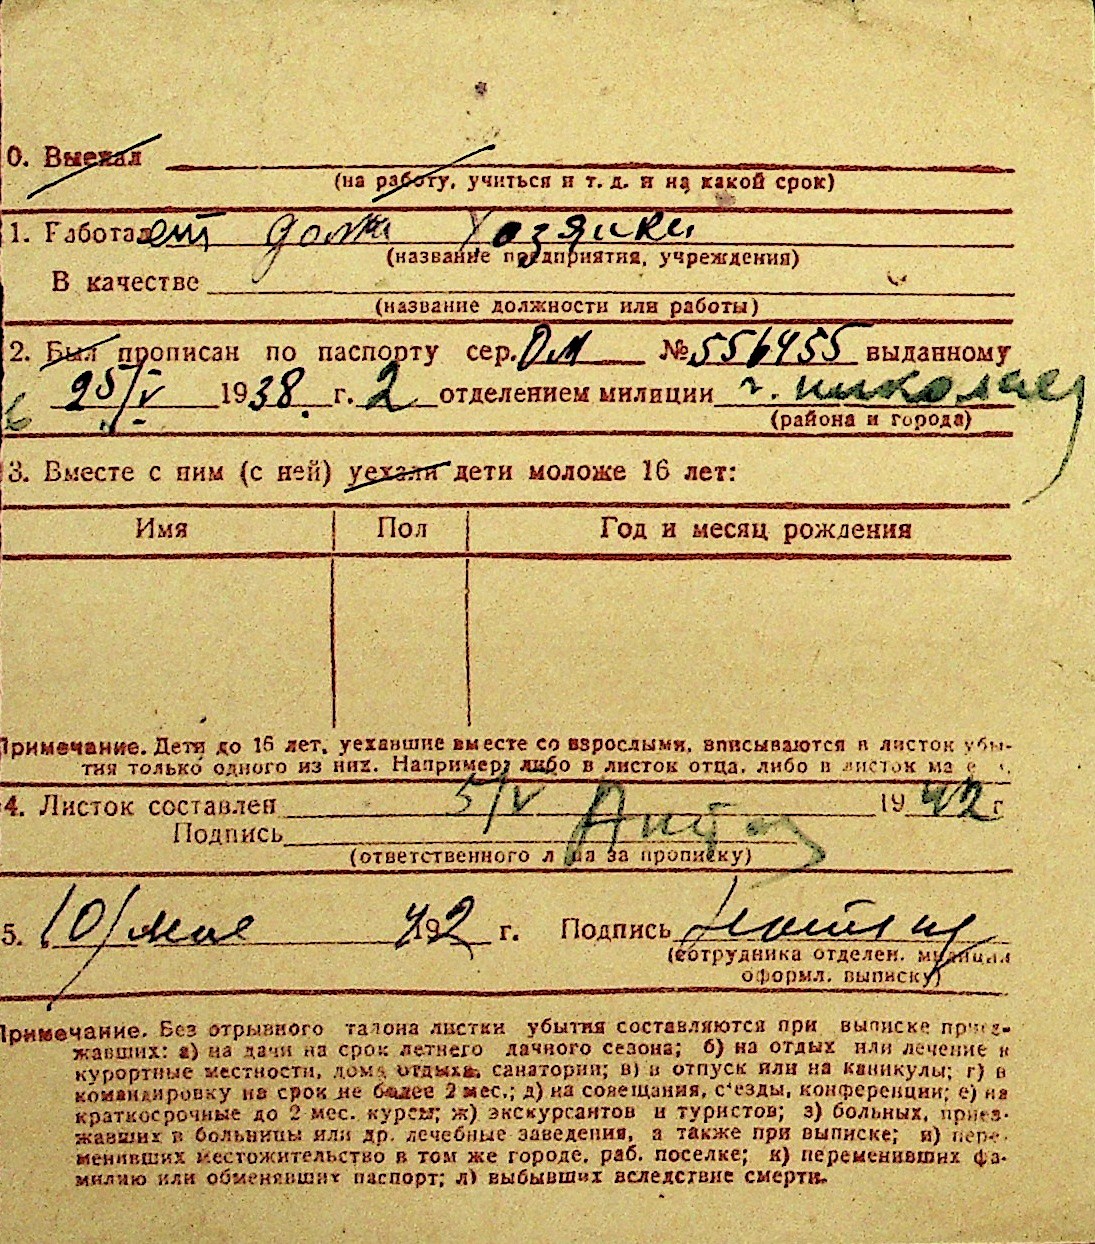 0. Выехал
(на работу, учиться и т. д. и на какой срок)
1. Работает дома хозяйки
(название предприятия, учреждения)
В качестве
(название должности или работы)
2. Был прописан по паспорту сер. ОМ № 556455 выданному
25/V 1938 г. 2 отделением милиции г. Николаев
(района и города)
3. Вместе с ним (с ней) уехали дети моложе 16 лет:
Имя Пол Год и месяц рождения
Примечание. Дети до 16 лет, уехавшие вместе со взрослыми, вписываются в листок убы-
тия только одного из них. Например: либо в листок отца, либо в листок ма е
4. Листок составлен 5/V 1942 г
Подпись
(ответственного лица за прописку)
5. 10/мая 42 г. Подпись
(сотрудника отделен. милиции
оформл. выписку)
Примечание. Без отрывного талона листки убытия составляются при выписке приез-
жавших: а) на дачи на срок летнего дачного сезона; б) на отдых или лечение в
курортные местности, дома отдыха, санатории; в) в отпуск или на каникулы; г) в
командировку на срок не более 2 мес.; д) на совещания, с'езды, конференции; е) на
краткосрочные до 2 мес. курсы; ж) экскурсантов и туристов; з) больных, приез-
жавших в больницы или др. лечебные заведения, а также при выписке; и) пере-
менивших местожительство в том же городе, раб. поселке; к) переменивших фа-
милию или обменявших паспорт; л) выбывших вследствие смерти.